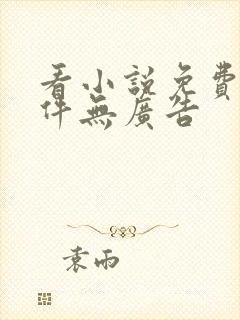 看小說免費
件無廣告
袁雨